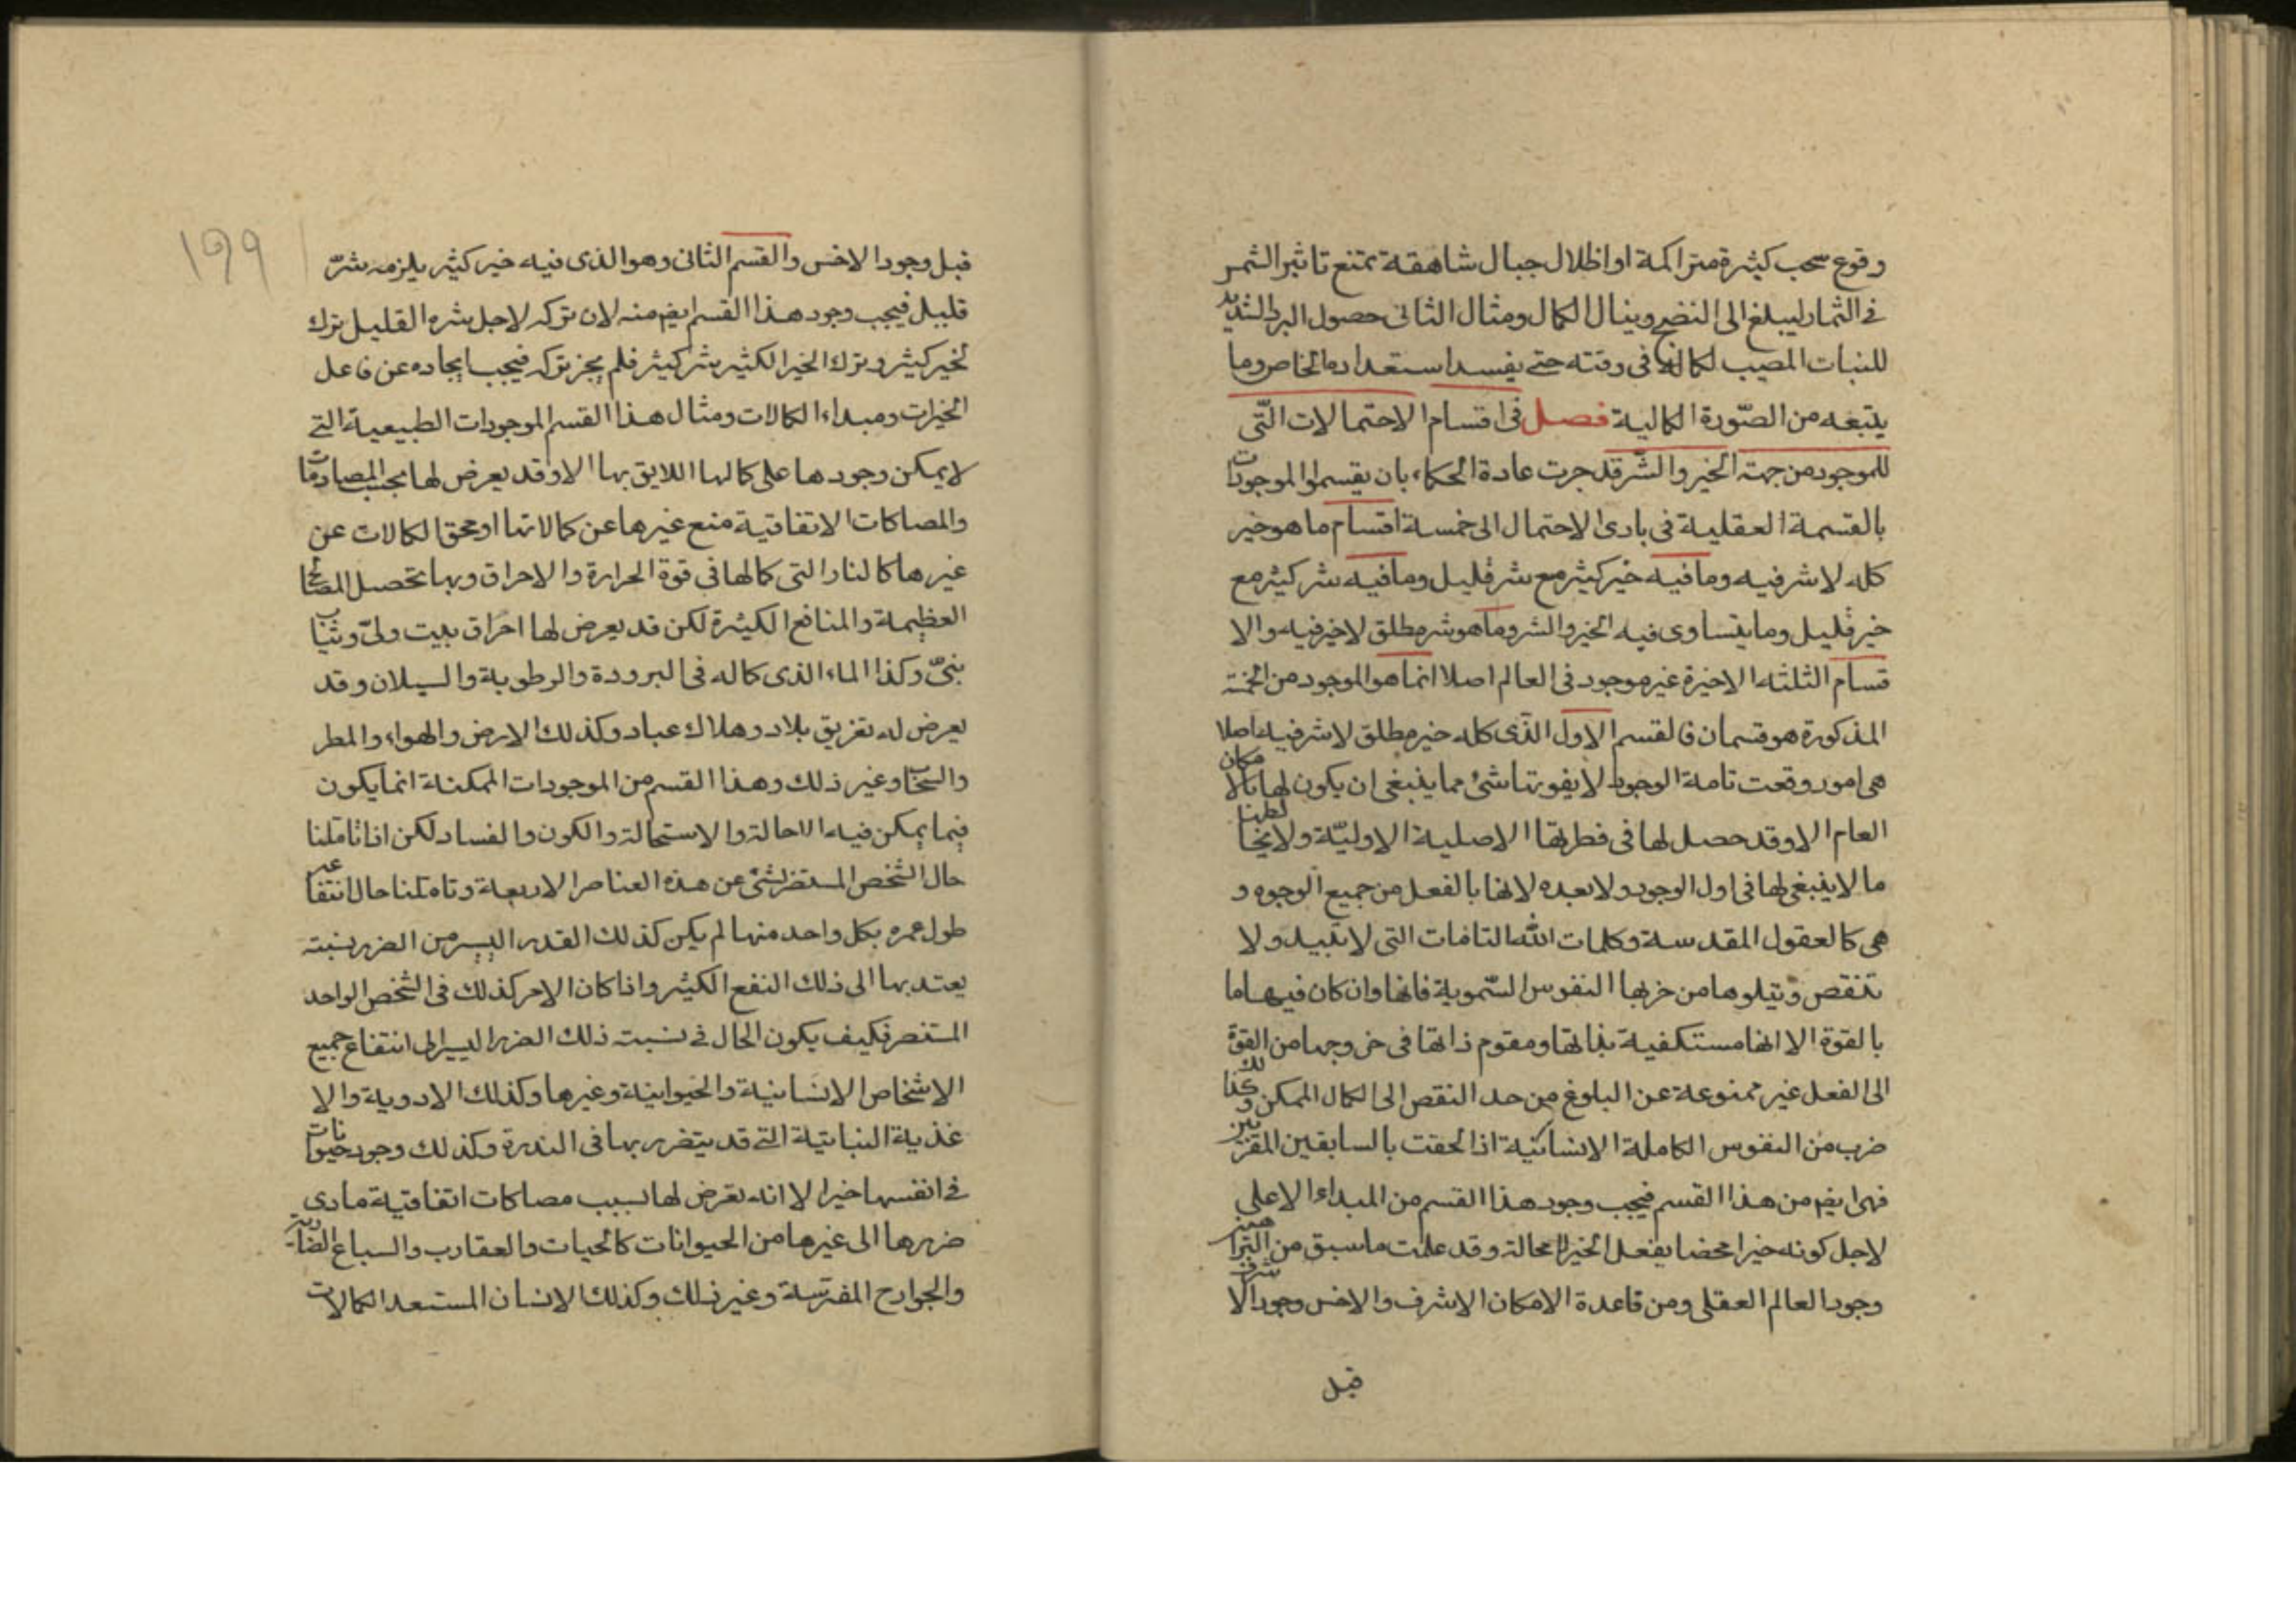 وقوع سحب كثيرة متراكمة او اظلال جبال شاهقة تمنع تاثير الشمس
فى الثمار ليبلغ الى النضج وينال الكمال ومثال الثانى حصول البرد الشديد
للنبات المصيب لكماله فى وقته حتى يفسد استعداده الخاص وما
يتبعه من الصّورة الكمالية فصل فى اقسام الاحتمالات الّتى
للموجود من جهة الخير والشّر قد جرت عادة الحكماء بان يقسموا الموجودات
بالقسمة العقلية فى بادى الاحتمال الى خمسة اقسام ما هو خير
كله لا شر فيه وما فيه خير كثير مع شر قليل وما فيه شر كثير مع
خير قليل وما يتساوى فيه الخير والشر وما هو شر مطلق لا خير فيه والا
قسام الثلثه الاخيرة غير موجود فى العالم اصلا انما هو الموجود من الخمسة
المذكورة هو قسمان فالقسم الاول الّذى كله خير مطلق لا شر فيه اصلا
هى امور وقعت تامة الوجود لا يفوتها شئ مما ينبغى ان يكون لها بالامكان
العام الا وقد حصل لها فى فطرتها الاصلية الاوليّة ولا يخالطها
ما لا ينبغى لها فى اول الوجود ولا بعده لانها بالفعل من جميع الوجوه و
هى كالعقول المقدسة وكلمات الله التامات التى لا تبيد ولا
تنقص وتيلوها من خربها النفوس السّموية فانها وان كان فيها ما
بالقوة الا انها مستكفية بذاتها ومقوم ذاتها فى خروجها من القوّة
الى الفعل غير ممنوعة عن البلوغ من حد النقص الى الكمال الممكن وكذلك
ضرب من النفوس الكاملة الانسانية اذا لحقت بالسابقين المقربين
فهى ايضم من هذا القسم فيجب وجود هذا القسم من المبداء الاعلى
لاجل كونه خيرا محضا يفعل الخير لا محالة وقد علمت ما سبق من البراهين
وجود العالم العقلى ومن قاعدة الامكان الاشرف والاخس وجود الاشرف
قبل
199
قبل وجود الاخس والقسم الثانى وهو الذى فيه خير كثير يلزمه شرّ
قليل فيجب وجود هذا القسم ايضم منه لان تركه لاجل شره القليل ترك
لخير كثير وترك الخير الكثير شر كثير فلم يجز تركه فيجب ايجاده عن فاعل
الخيرات ومبداء الكمالات ومثال هذا القسم الموجودات الطبيعية التى
لا يمكن وجودها على كمالها اللايق بها الا وقد يعرض لها بحسب المصادمات
والمصاكات الاتفاقية منع غيرها عن كمالاتها او محق الكمالات عن
غيرها كالنار التى كمالها فى قوة الحرارة والاحراق وبها تحصل المصالح
العظيمة والمنافع الكثيرة لكن قد يعرض لها احراق بيت ولىّ وثياب
نبىّ وكذا الماء الذى كماله فى البرودة والرطوبة والسيلان وقد
يعرض له تغريق بلاد وهلاك عباد وكذلك الارض والهواء والمطر
والسحاب وغير ذلك وهذا القسم من الموجودات الممكنة انما يكون
فيما يمكن فيه الاحالة والاستحالة والكون والفساد لكن اذا تاملنا
حال الشخص المستضر بشئ من هذه العناصر الاربعة وتاملنا حال انتفاعه
طول عمره بكل واحد منها لم يكن كذلك القدر اليسير من الضرر نسبته
يعتد بها الى ذلك النفع الكثير واذا كان الامر كذلك فى الشخص الواحد
المستضر فكيف يكون الحال فى نسبت ذلك الضرر اليسير الى انتفاع جميع
الاشخاص الانسانية والحيوانية وغيرها وكذلك الادوية والا
غذية النباتية التى قد يتضرر بها فى الندرة وكذلك وجود حيوانات
فى انفسها خيرا لا انه تعرض لها بسبب مصاكات اتفاقية مادى
ضررها الى غيرها من الحيوانات كالحيات والعقارب والسباع الضارية
والجوارح المفترسة وغير ذلك وكذلك الانسان المستعد الكمالات